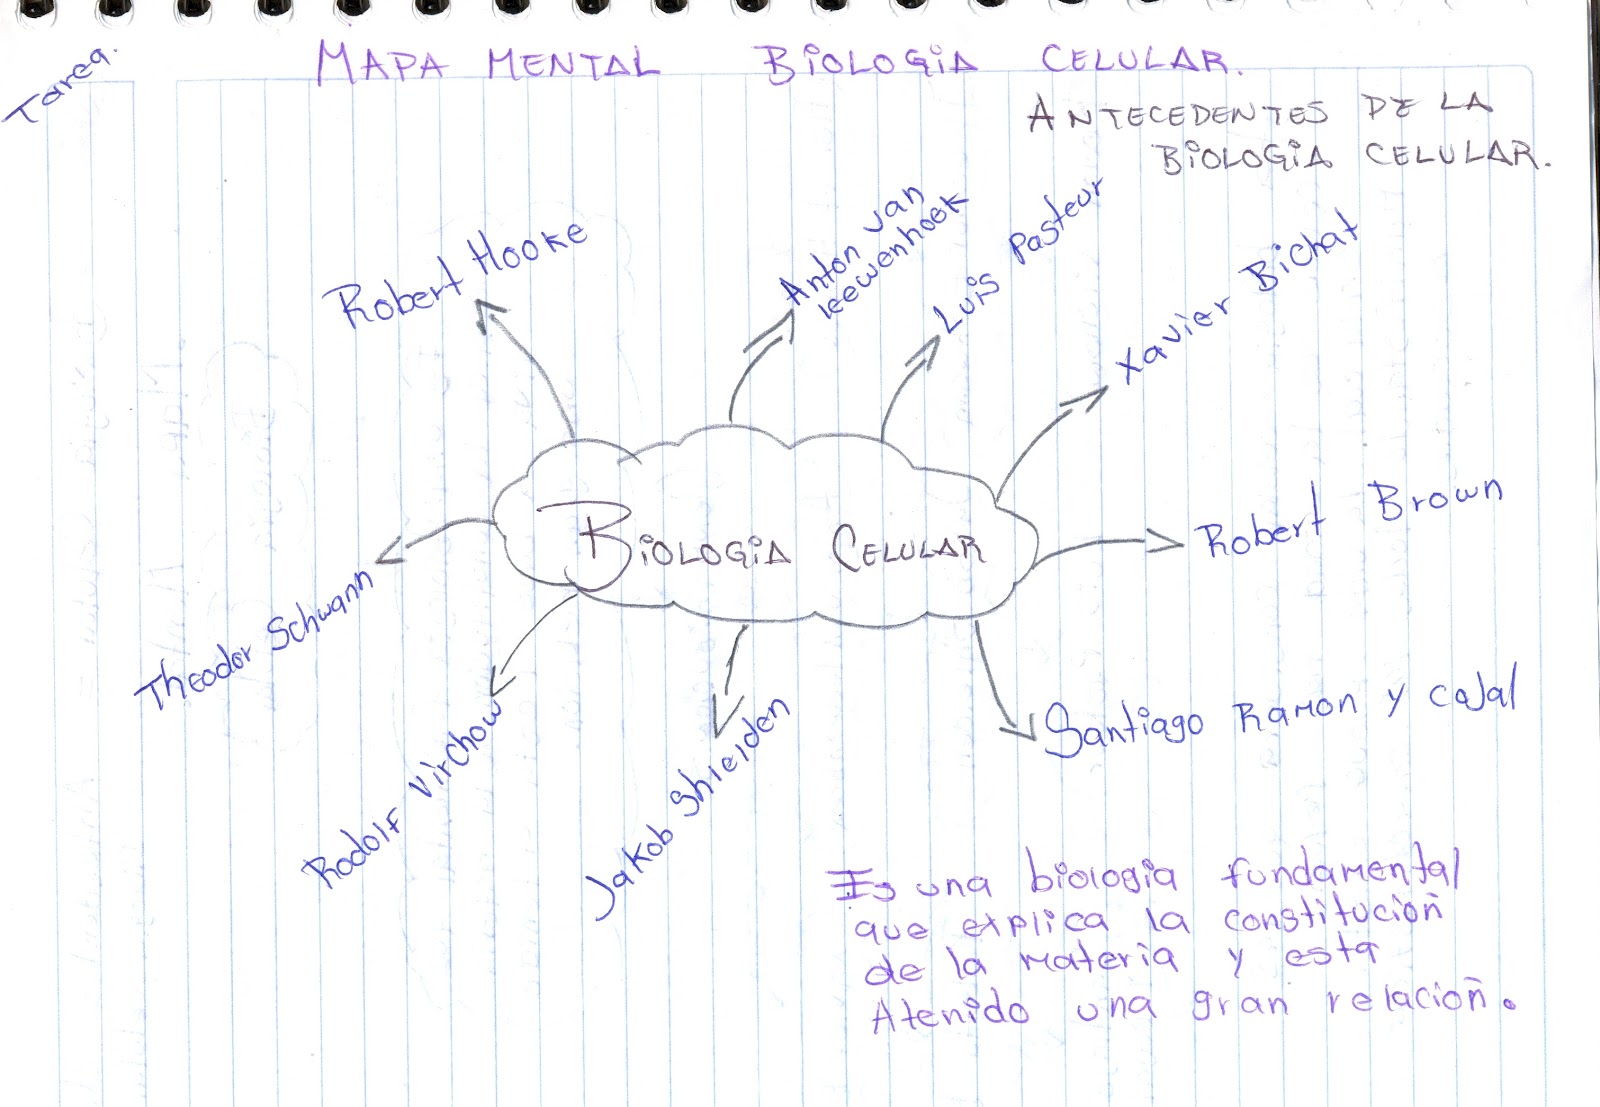 Tarea.
MAPA MENTAL BiOLOGiA CELULAR.
ANTECEDENTES DE LA
BiOLOGiA CELULAR.
Robert Hooke
Anton van
leewenhoek
Luis Pasteur
Xavier Bichat
BiOLOGiA CELULAR
Robert Brown
Theodor Schwann
Rodolf Virchow
Jakob Shleiden
Santiago Ramon y cajal
Es una biologia fundamental
que explica la constitucioñ
de la materia y esta
Atenido una gran relacioñ.